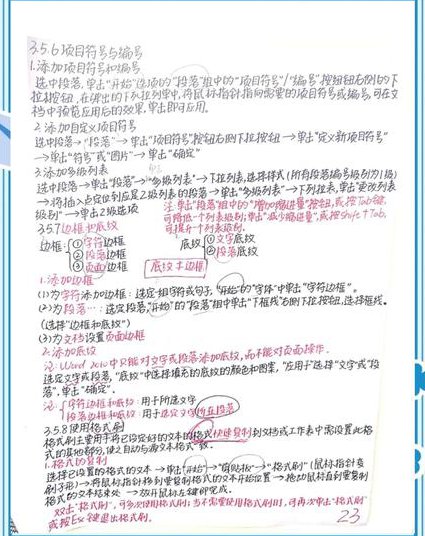 3.5.6 项目符号与编号
1.添加项目符号和编号
选中段落,单击"开始"选项的"段落"组中的"项目符号"/"编号"按钮右侧的下
拉按钮,在弹出的下拉列表中,将鼠标指针指向需要的项目符号或编号,可在文
档中预览应用后的效果,单击即可应用。
2.添加自定义项目符号
选中段落→"段落"→单击"项目符号"按钮右侧下拉按钮→单击"定义新项目符号"
→单击"符号"或"图片"→单击"确定"
3.添加多级列表
选中段落→单击"段落"→"多级列表"→下拉列表,选择样式(所有段落编号级别为1级)
→将插入点定位到应是2级列表的段落→单击"多级列表"→下列拉表,单击"更改列表
级别"→单击2级选项
注:单击"段落"组中的"增加缩进量"按钮,或按Tab键,
可降低一个列表级别;单击"减少缩进量",或按Shift+Tab,
可提升一个列表级别.
3.5.7 边框和底纹
边框:①字符边框
②段落边框
③页面边框
底纹①文字底纹
②段落底纹
底纹≠边框
1.添加边框
(1)为字符添加边框:选定一组字符或句子,"开始"的"字体"中单击"字符边框"。
(2)为段落…:选定段落,"开始"的"段落"组中单击"下框线"右侧下拉按钮,选择框线。
(选择"边框和底纹")
(3)为文档设置页面边框
2.添加底纹
注:Word 2010中只能对文字或段落添加底纹,而不能对页面操作.
选定文字或段落,"底纹"中选择填充的底纹的颜色和图案,"应用于"选择"文字"或"段
落",单击"确定"。
注:字符边框和底纹:用于所选文字
段落边框和底纹:用于选定文字所在段落
3.5.8 使用格式刷
格式刷主要用于将已设定好的文本的格式快速复制到文档或工作表中需设置此格
式的其他部分,使之自动与源文本格式一致.
1.格式的复制
选择已设置的格式的文本→单击"开始"→"剪贴板"→"格式刷"(鼠标指针变
刷子形)→将鼠标指针移到需要复制格式的文本开始位置→拖动鼠标直到需要复制
格式的文本结束处→放开鼠标左键即完成.
双击"格式刷",可多次使用格式刷;当不需使用格式刷时,可再次单击"格式刷"
或按Esc键退出格式刷.
23